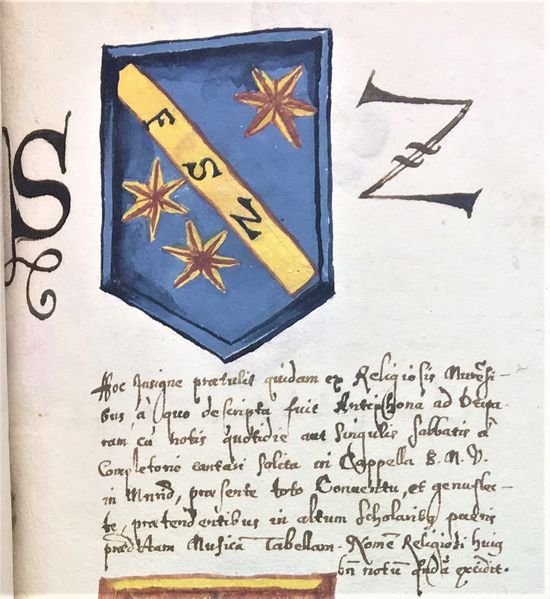 S
F S Z
Z
Hoc Insigne prætulit quidam ex Religiosis Murẽsi-
bus à quo descripta fuit Antiphona ad Deipa-
ram, cũ notis quotidie aut singulis sabbatis à
Completorio cantari solita in Cappella B. M. V.
in præsente toto Conventu, et genuflec-
te, prætendentibus in altum scholaribꝰ pueris
Musicã Tabellam. Nomẽ Religiosi huiꝰ
excidit.